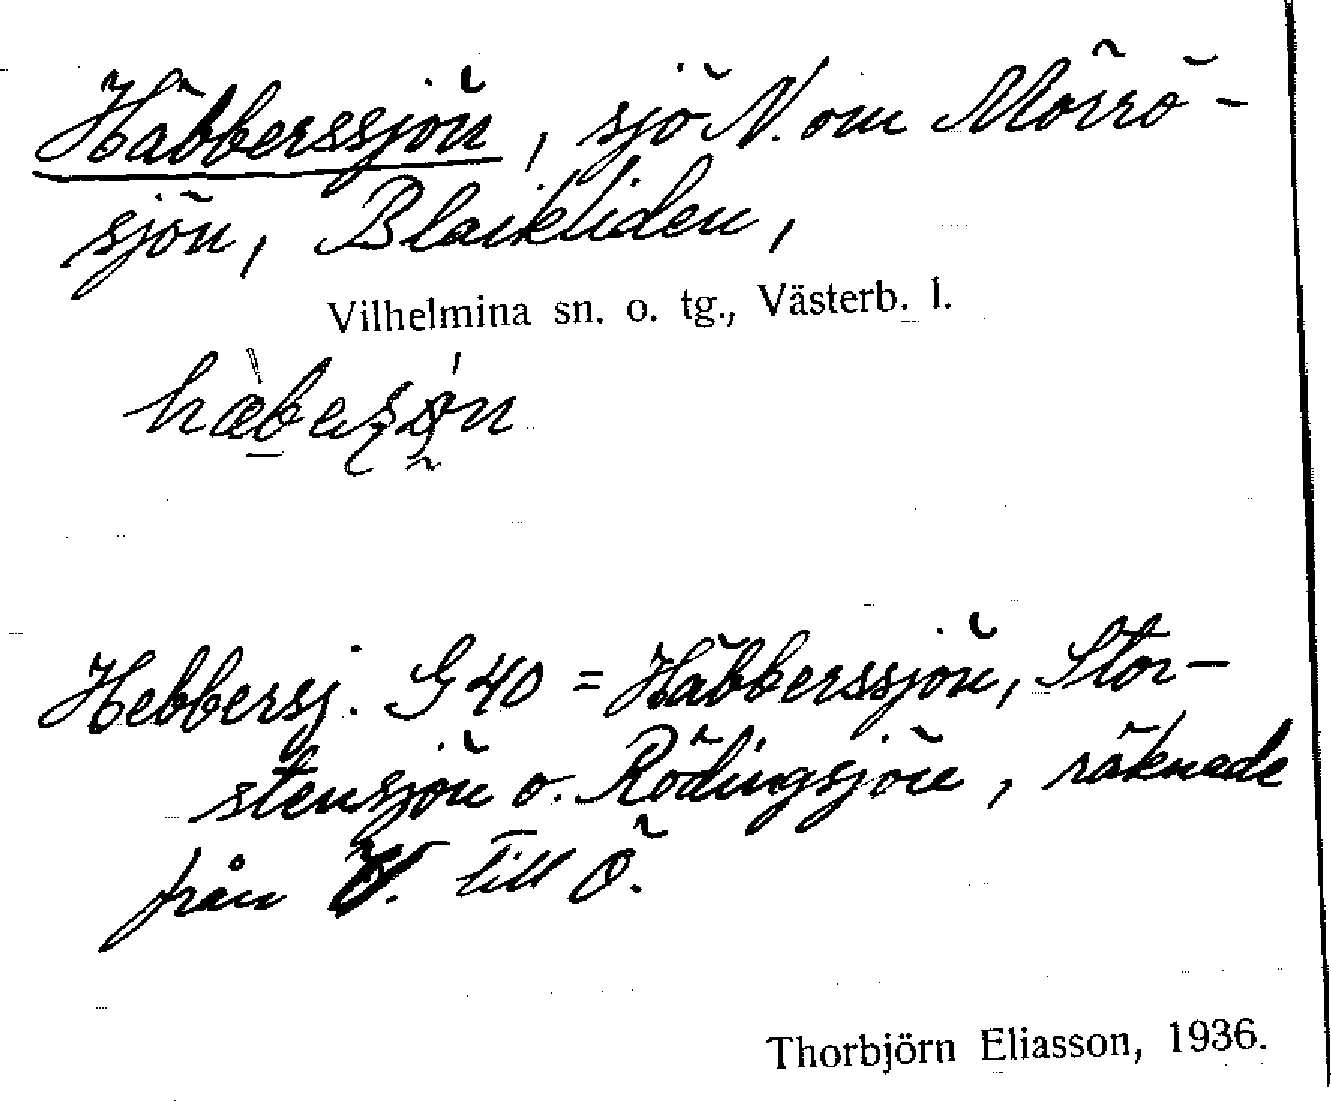 Häbberssjön, sjö N. om Mörrö-
sjön, Blaikliden,
Vilhelmina sn. o. tg., Västerb. l.
Hebbersj. G 40 = Häbberssjön, Stor-
stensjön o. Rödingsjön, räknade
från V. till Ö.
Thorbjörn Eliasson, 1936.